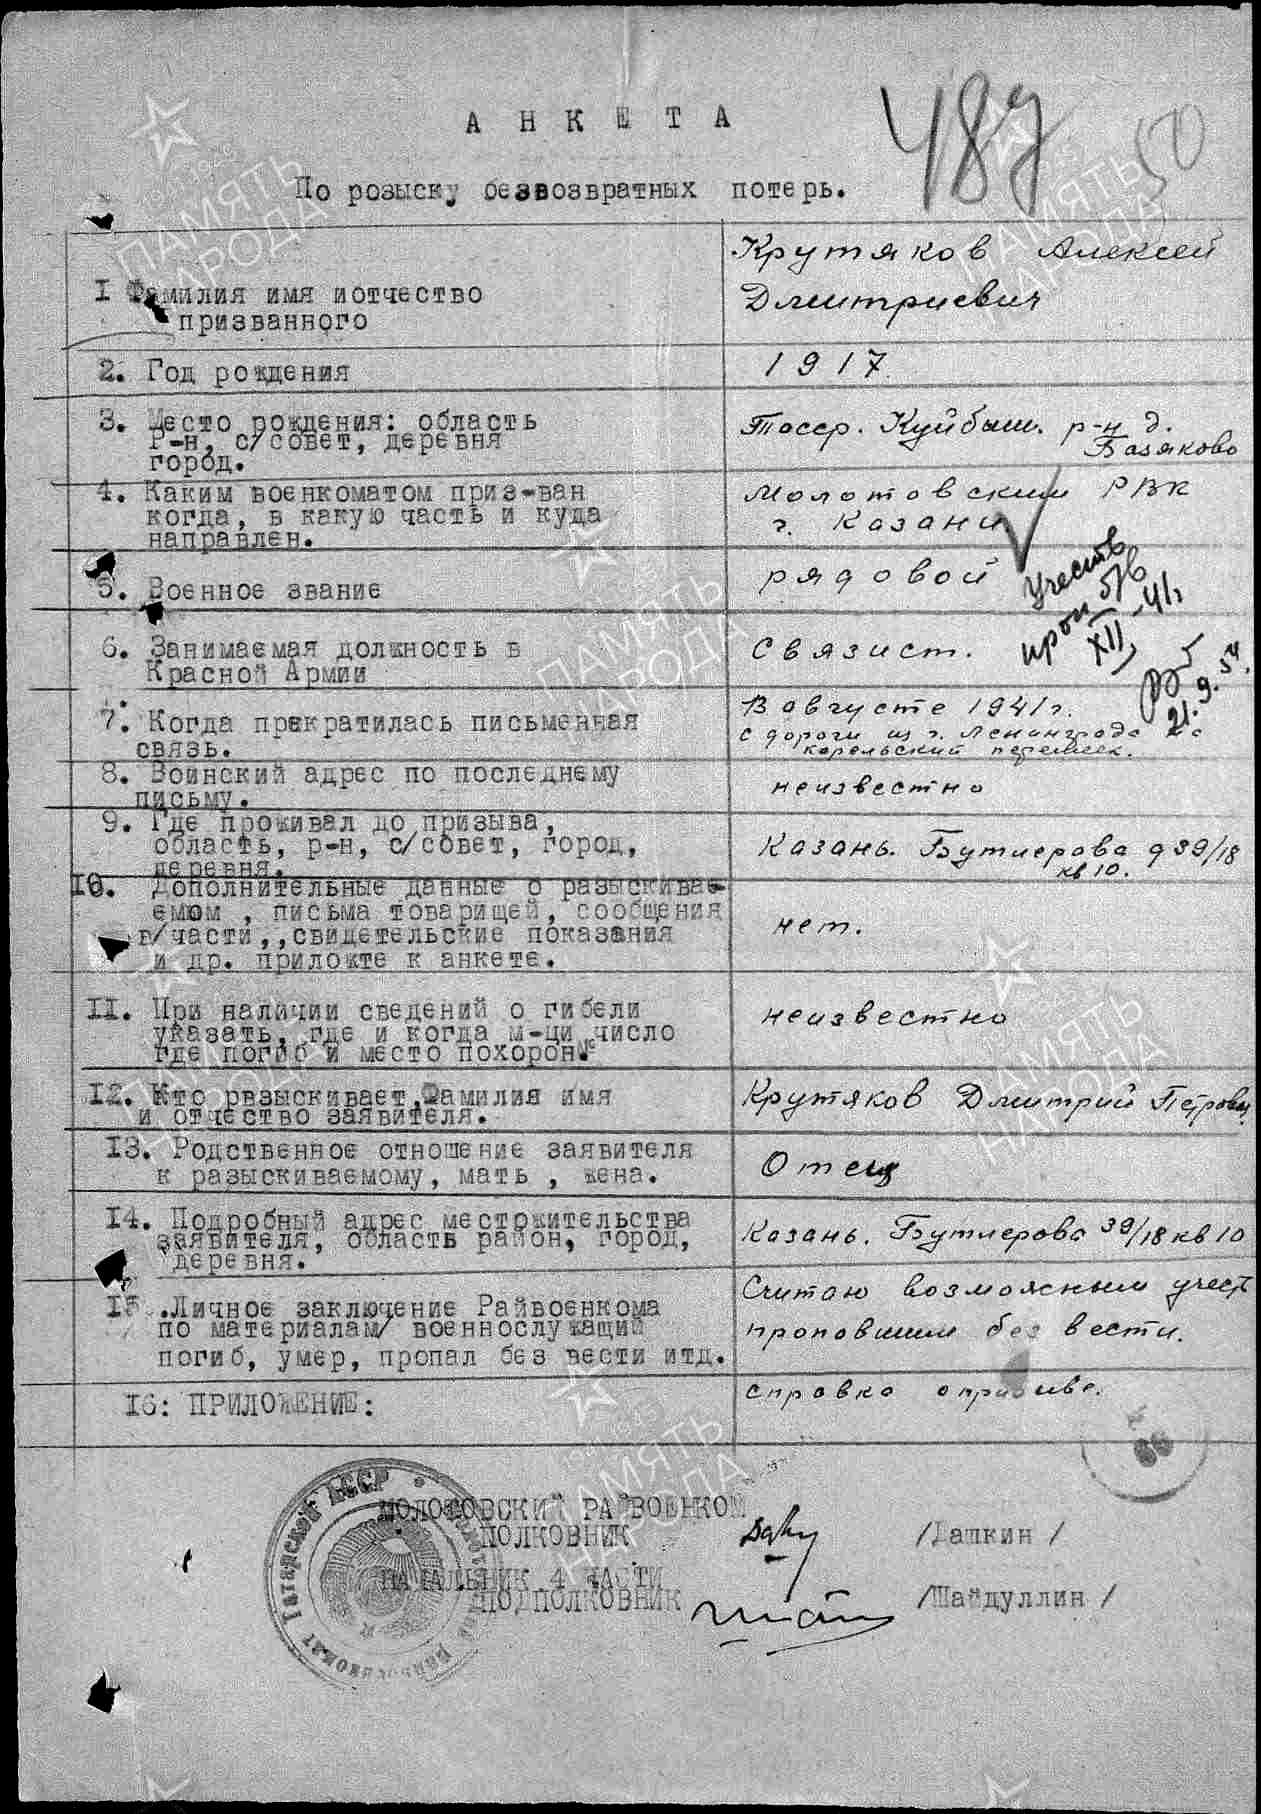 48у 50
АНКЕТА
По розыску безвозвратных потерь.
I Фамилия имя иотчество
призванного
Крутяков Алексей
Дмитриевич
2. Год рождения
1917
3. Место рождения: область
Р-н, с/совет, деревня
город.
Тасср. Куйбыш. р-н д.
Базяково
4. Каким военкоматом приз-ван
когда, в какую часть и куда
направлен.
Молотовским РВК
г. Казани
5. Военное звание
рядовой
Учесть
проп б/в
XII-41г
21.9.54.
6. Занимаемая должность в
Красной Армии
Связист.
7. Когда прекратилась письменная
связь.
В августе 1941г.
с дороги из г. Ленинграда на
карельский перешеек.
8. Воинский адрес по последнему
письму.
неизвестно
9. Где проживал до призыва,
область, р-н, с/совет, город,
деревня.
Казань. Бутлерова д 39/18
кв 10.
10. Дополнительные данные о разыскивае-
емом , письма товарищей, сообщения
в/части,,свидетельские показания
и др. приложте к анкете.
нет.
II. При наличии сведений о гибели
указать, где и когда м-ци число
где погиб и место похорон.
неизвестно
12. Кто разыскивает,Фамилия имя
и отчество заявителя.
Крутяков Дмитрий Петрович
13. Родственное отношение заявителя
к разыскиваемому, мать , жена.
Отец
14. Подробный адрес местожительства
заявителя, область район, город,
деревня.
Казань. Бутлерова 39/18 кв 10
15 .Личное заключение Райвоенкома
по материалам/ военнослужащий
погиб, умер, пропал без вести итд.
Считаю возможным учесть
пропавшим без вести.
16: ПРИЛОЖЕНИЕ:
справка о призыве.
МОЛОТОВСКИЙ РАЙВОЕНКОМ
ПОЛКОВНИК
/Дашкин /
НАЧАЛЬНИК 4 ЧАСТИ
ПОДПОЛКОВНИК
/Шайдуллин /
Татарской АССР
ПАМЯТЬ
НАРОДА